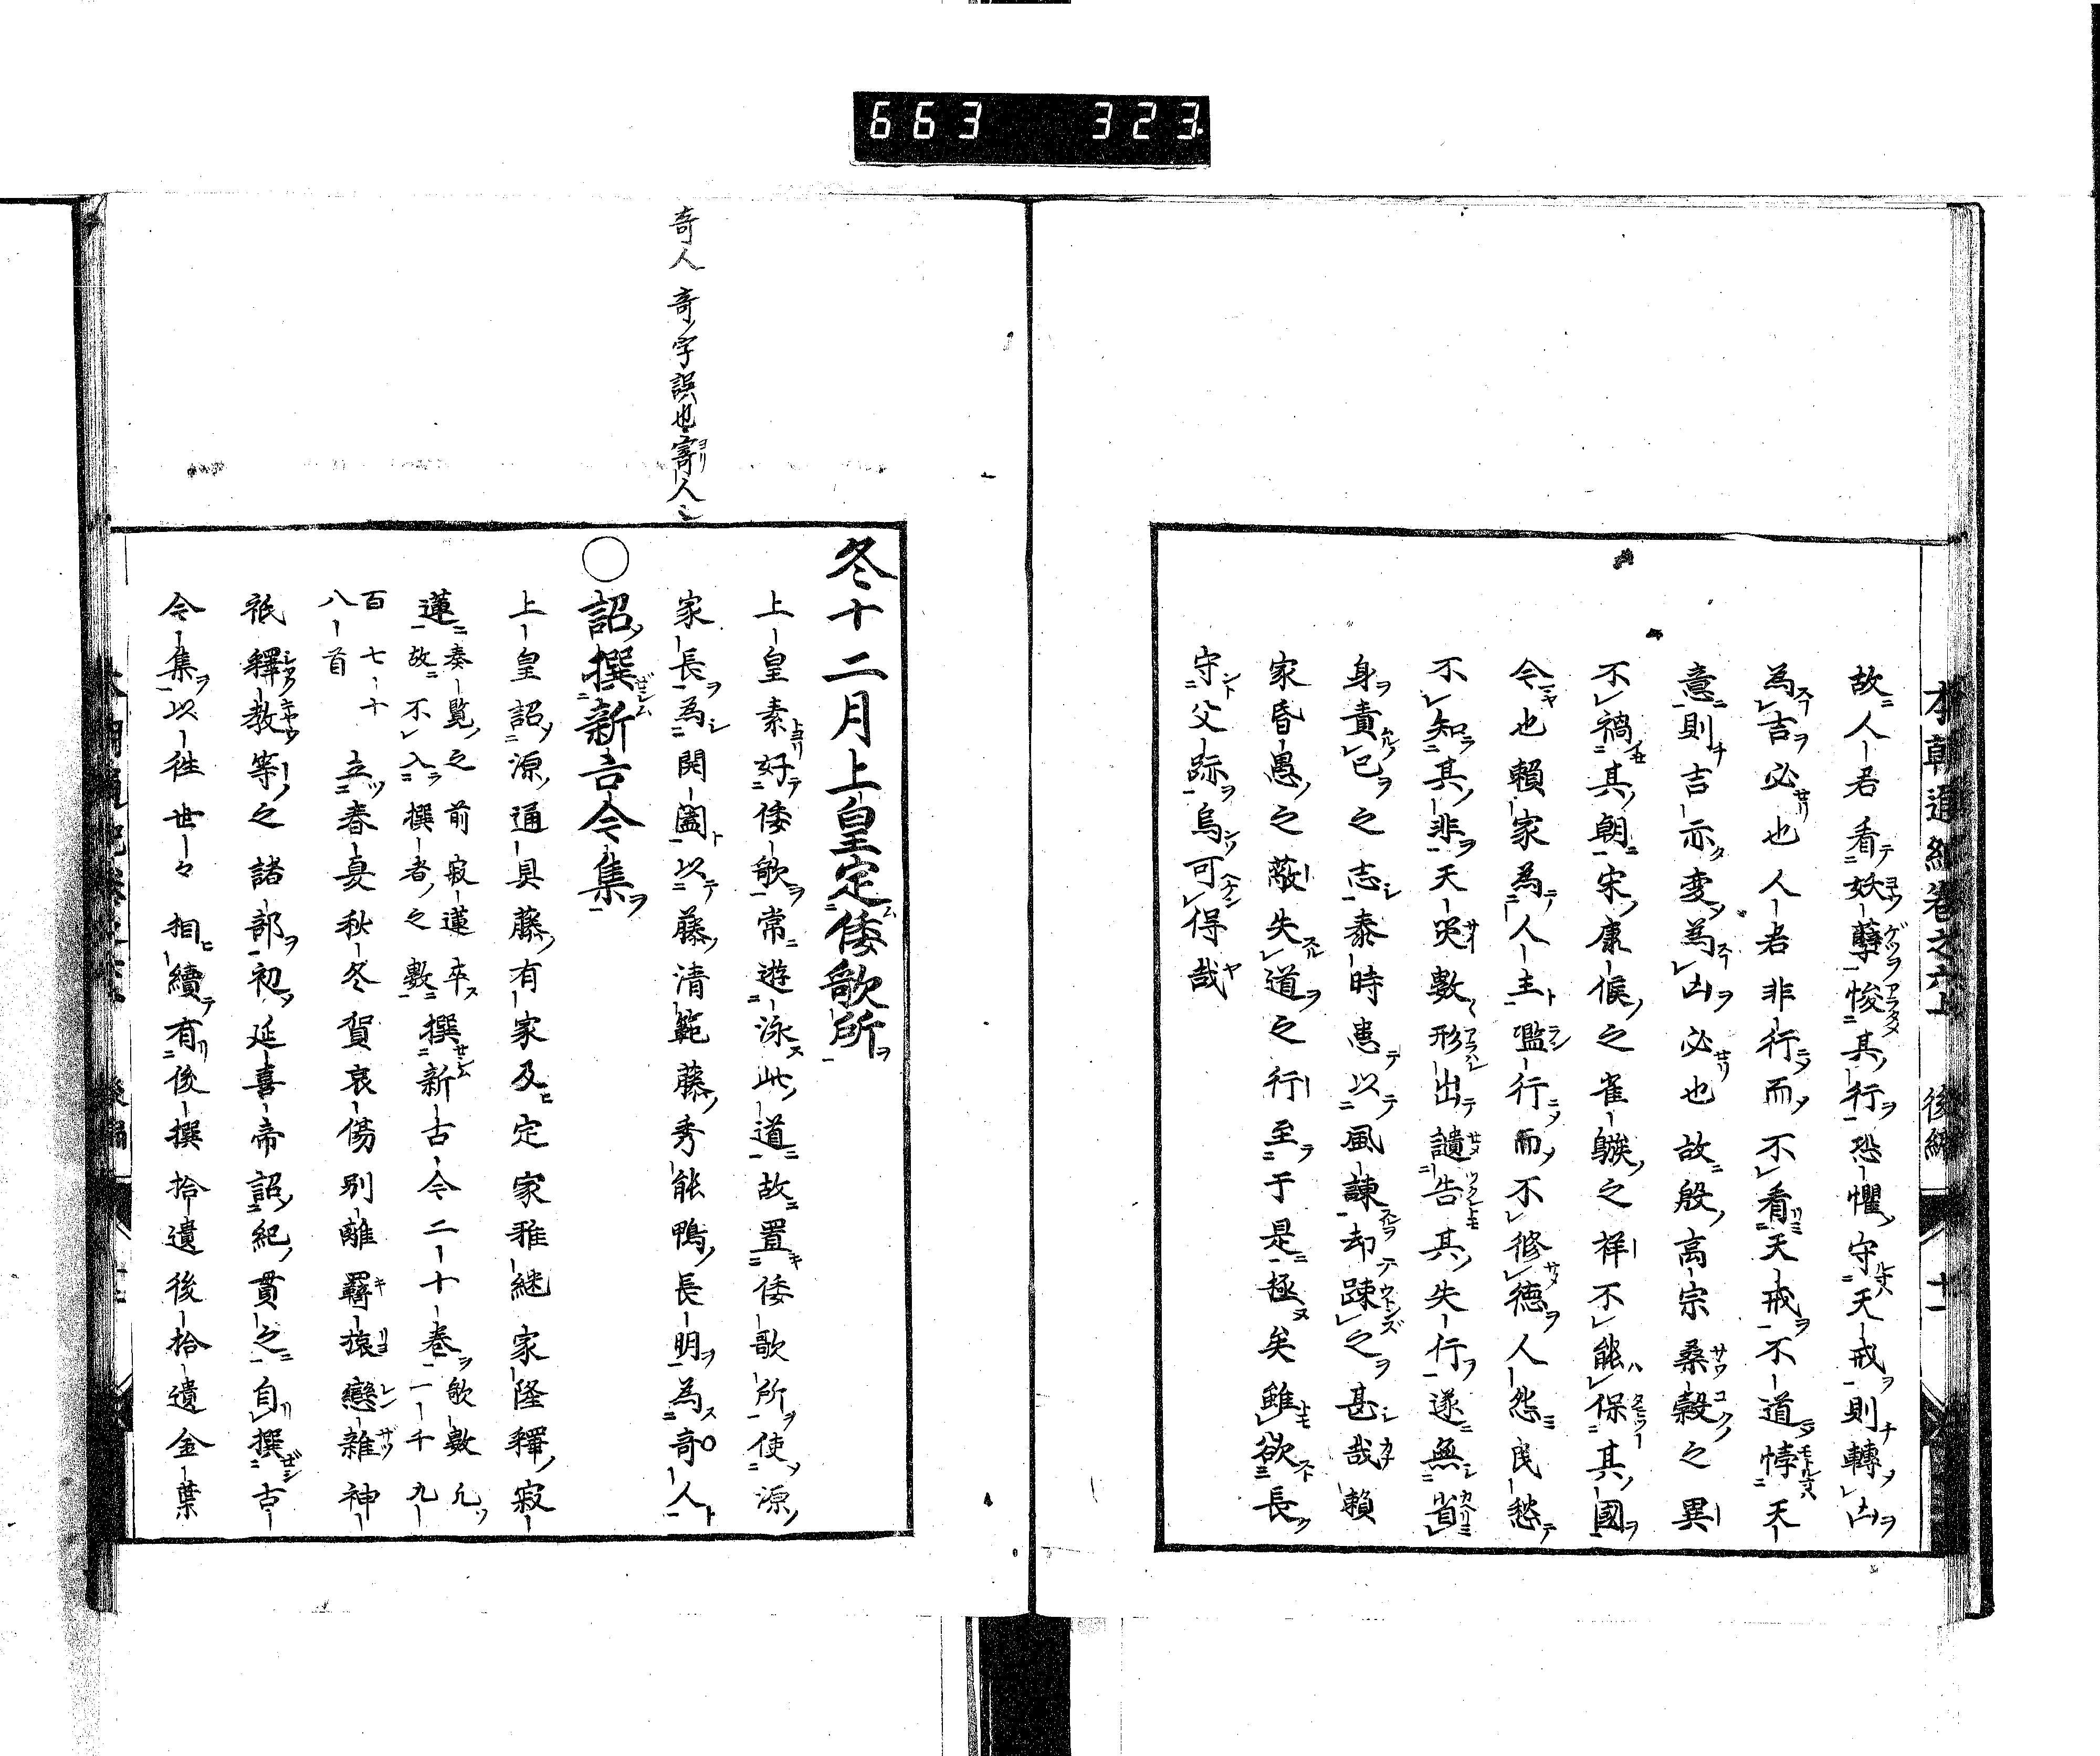 663 323
本朝通紀卷之六上 後編 十一
故人君看妖孽悛其行恐懼守天戒則轉凶
為吉必也人君非行而不看天戒不道悖天
意則吉亦変為凶必也故殷高宗桑穀之異
不禍其朝宋康侯之雀鷇之祥不能保其國
今也賴家為人主濫行而不修德人怨民愁
不知其非天災數形出譴告其失行遂無省
身責已之志泰時患以風諫却疎之甚哉賴
家昏愚之蔽失道之行至于是極矣雖欲長
守父跡烏可得哉
奇人 奇ノ字誤也寄人ニ
冬十二月上皇定倭歌所
上皇素好倭歌常遊泳此道故置倭歌所使源
家長為開闔以藤清範藤秀能鴨長明為奇人
○詔撰新古今集
上皇詔源通具藤有家及定家雅継家隆釋寂
蓮奏覧之前寂蓮卒故不入撰者之數撰新古今二十卷歌數凡一千九
百七十八首立春夏秋冬賀哀傷別離羇旅戀雜神
祇釋教等之諸部初延喜帝詔紀貫之自撰古
今集以往世々相續有後撰拾遺後拾遺金葉